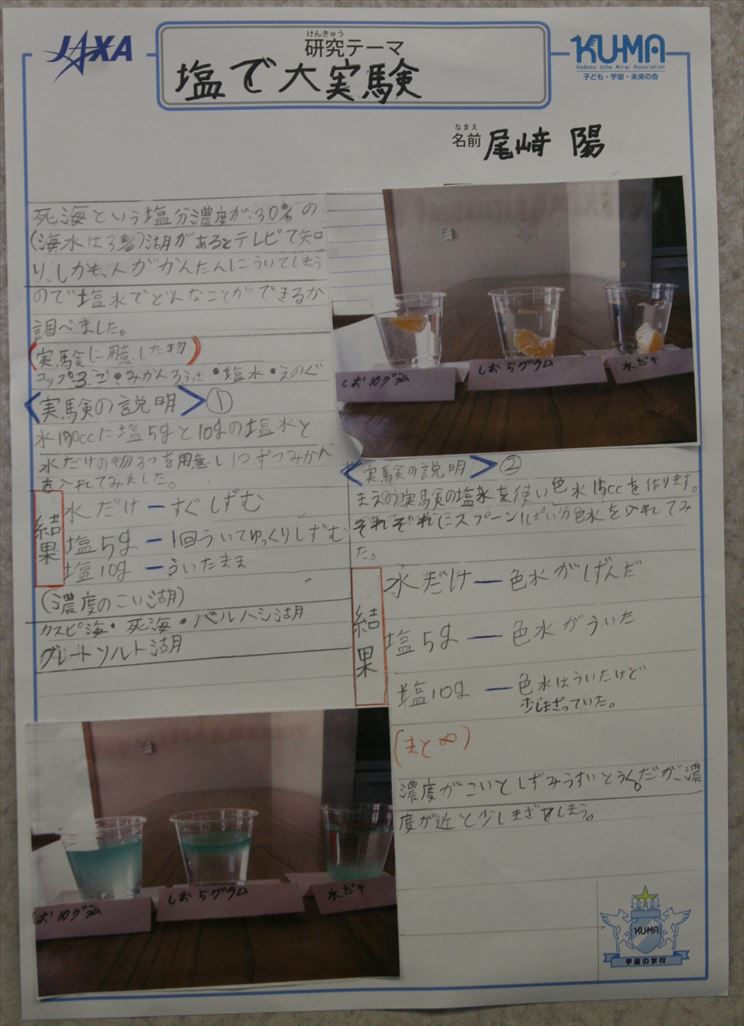 JAXA
けんきゅう
研究テーマ
塩で大実験
KU-MA
Kodomo Uchu Mirai Association
子ども・宇宙・未来の会
なまえ
名前 尾﨑 陽
死海という塩分濃度が、30%の
(海水は3%)湖があるとテレビで知
り、しかも、人がかんたんにういてしまう
ので塩水でどんなことができるか
調べました。
(実験に用意した物)
コップ3こ・みかん3つ・塩水・えのぐ
<実験の説明>①
水150ccに塩5gと10gの塩水と
水だけの物3つを用意し1つずつみかん
を入れてみました。
結果
水だけ ー すぐしずむ
塩5g ー 1回ういてゆっくりしずむ
塩10g ー ういたまま
(濃度のこい湖)
カスピ海・死海・バルハシ湖
グレートソルト湖
しお10グラム
しお5グラム
水だけ
<実験の説明>②
まえの実験の塩水を使い色水15ccを作ります。
それぞれにスプーン1ぱい分色水を入れてみ
た。
結果
水だけ ー 色水がしずんだ
塩5g ー 色水がういた
塩10g ー 色水はういたけど
少しまざっていた。
(まとめ)
濃度がこいとしずみうすいとうく。だが、濃
度が近と少しまざてしまう。
お10グラム
しお5グラム
水だけ
KU-MA
宇宙の学校